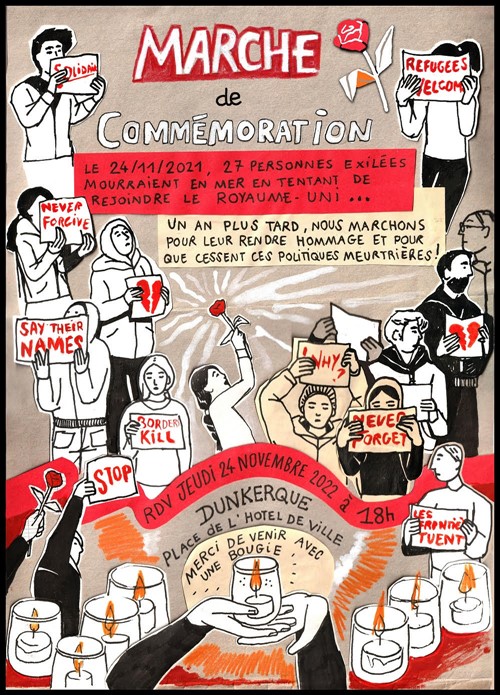 MARCHE
de
COMMÉMORATION
SOLIDAIRE
REFUGEES
WELCOME
LE 24/11/2021, 27 PERSONNES EXILÉES
MOURRAIENT EN MER EN TENTANT DE
REJOINDRE LE ROYAUME-UNI ...
NEVER
FORGIVE
UN AN PLUS TARD, NOUS MARCHONS
POUR LEUR RENDRE HOMMAGE ET POUR
QUE CESSENT CES POLITIQUES MEURTRIÈRES!
SAY THEIR
NAMES
WHY?
!
BORDERS
KILL
NEVER
FORGET
STOP
RDV JEUDI 24 NOVEMBRE 2022 à 18h
DUNKERQUE
PLACE DE L'HOTEL DE VILLE
MERCI DE VENIR AVEC
UNE BOUGIE
LES FRONTIÈ
TUENT